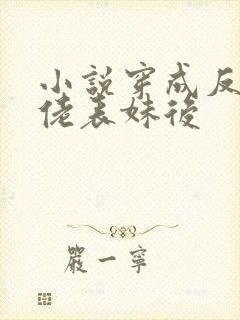 小說穿成反
佬表妹後
嚴一寧